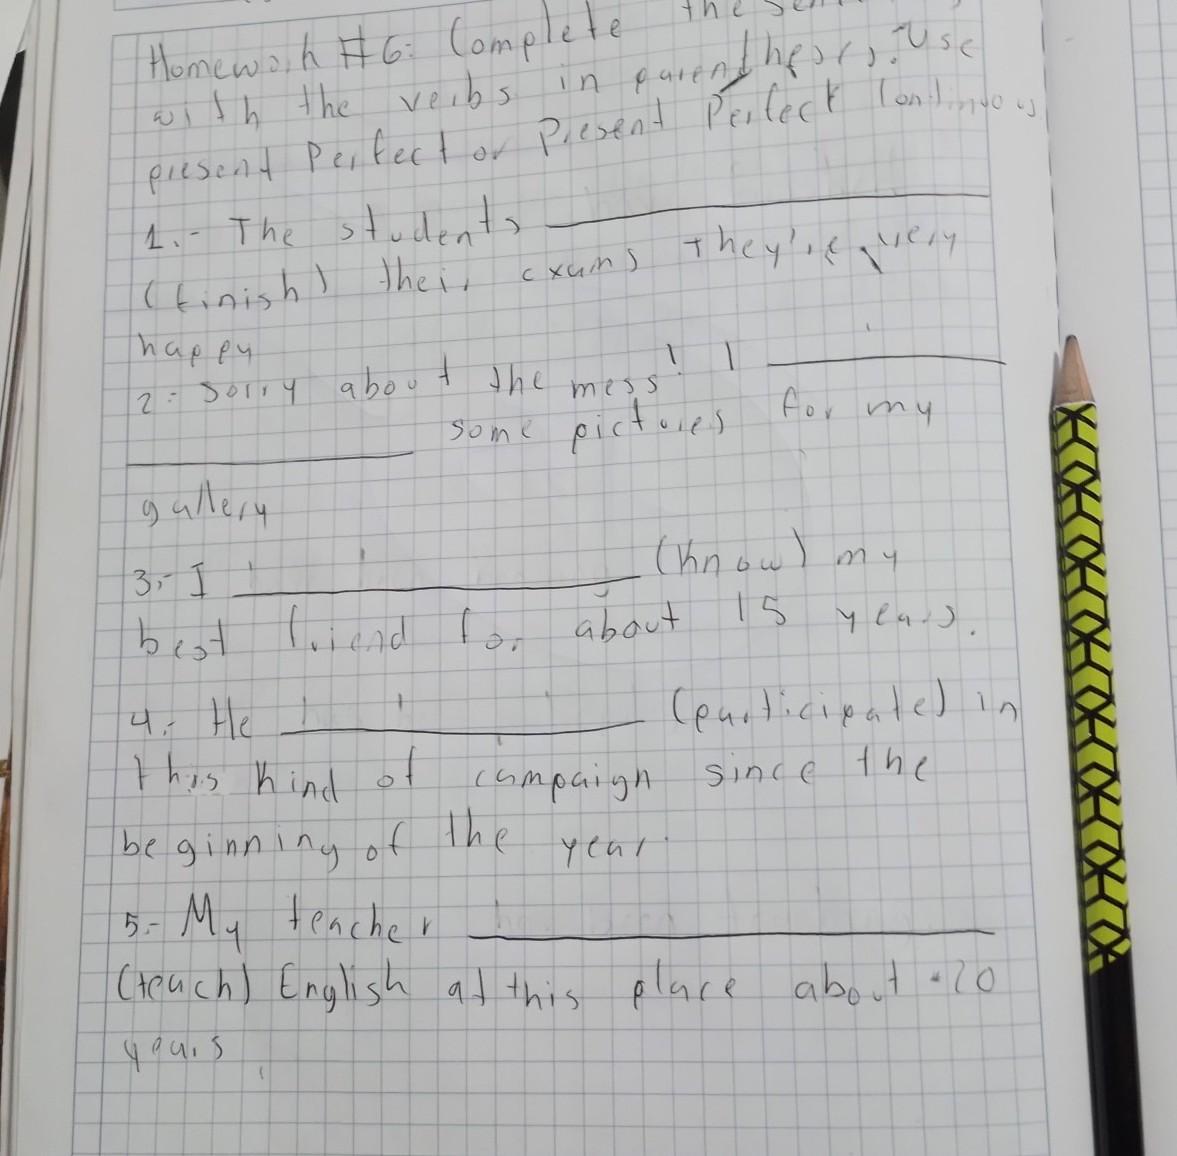 Homework #6: Complete the
with the verbs in parenthesis. Use
present Perfect or Present Perfect Continuous
1.- The students
(finish) their exams They're very
happy
2.- Sorry about the mess! I
some pictures for my
gallery
3.- I (know) my
best friend for about 15 years.
4.- He (participate) in
this kind of campaign since the
beginning of the year.
5.- My teacher
(teach) English at this place about 20
years